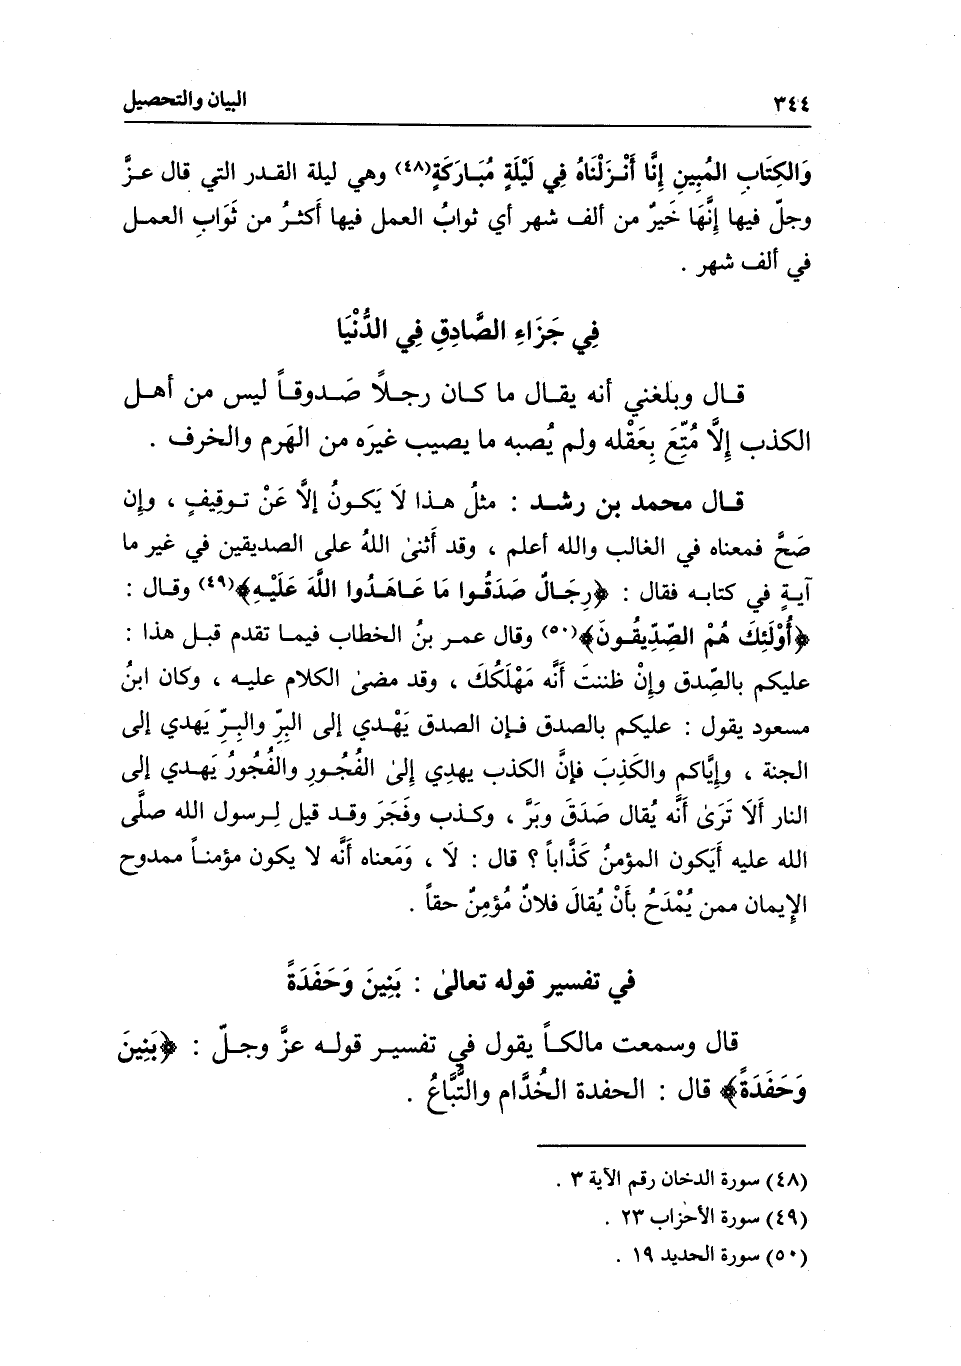 ٣٤٤
البيان والتحصيل
وَالكِتَابِ المُبِينِ إِنَّا أَنْزَلْنَاهُ فِي لَيْلَةٍ مُبَارَكَةٍ(٤٨) وهي ليلة القدر التي قال عزَّ
وجلّ فيها إِنَّهَا خَيرٌ من ألف شهر أي ثوابُ العمل فيها أَكثرُ من ثَوَابِ العمل
في ألف شهر .
فِي جَزَاءِ الصَّادِقِ فِي الدُّنْيَا
قال وبلغني أنه يقال ما كان رجلاً صَدوقاً ليس من أهل
الكذب إِلَّا مُتِّعَ بِعَقْله ولم يُصبه ما يصيب غيرَه من الهَرم والخرف .
قال محمد بن رشد : مثلُ هذا لَا يَكونُ إلَّا عَنْ توقِيفٍ ، وإن
صَحَّ فمعناه في الغالب والله أعلم ، وقد أثنىٰ اللهُ على الصديقين في غير ما
آيةٍ في كتابه فقال : ﴿رِجَالٌ صَدَقُوا مَا عَاهَدُوا اللَّهَ عَلَيْهِ﴾(٤٩) وقال :
﴿أُوْلَئِكَ هُمْ الصِّدِّيقُونَ﴾(٥٠) وقال عمر بنُ الخطاب فيما تقدم قبل هذا :
عليكم بالصِّدق وإنْ ظننتَ أَنَّه مَهْلَكُكَ ، وقد مضىٰ الكلام عليه ، وكان ابنُ
مسعود يقول : عليكم بالصدق فإن الصدق يَهْدي إلى البِرِّ والبِرّ يَهدي إلى
الجنة ، وإِيَّاكم والكَذِبَ فإنَّ الكذب يهدِي إلىٰ الفُجُورِ والفُجُورُ يَهدي إلى
النار أَلَا تَرَىٰ أَنَّه يُقال صَدَقَ وبَرَّ ، وكذب وفَجَرَ وقد قيل لِرسول الله صلَّى
الله عليه أَيَكون المؤمنُ كَذَّاباً ؟ قال : لَا ، وَمَعناه أَنَّه لا يكون مؤمناً ممدوح
الإِيمان ممن يُمْدَحُ بأَنْ يُقالَ فلانٌ مُؤمِنٌ حقاً .
في تفسير قوله تعالىٰ : بَنِينَ وَحَفَدَةً
قال وسمعت مالكاً يقول في تفسير قوله عزَّ وجلّ : ﴿بَنِينَ
وَحَفَدَةً﴾ قال : الحفدة الخُدَّام والتُّبَّاعُ .
(٤٨) سورة الدخان رقم الآية ٣ .
(٤٩) سورة الأحزاب ٢٣ .
(٥٠) سورة الحديد ١٩ .